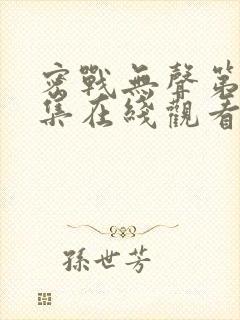 密戰無聲第
集在綫觀看
孫世芳